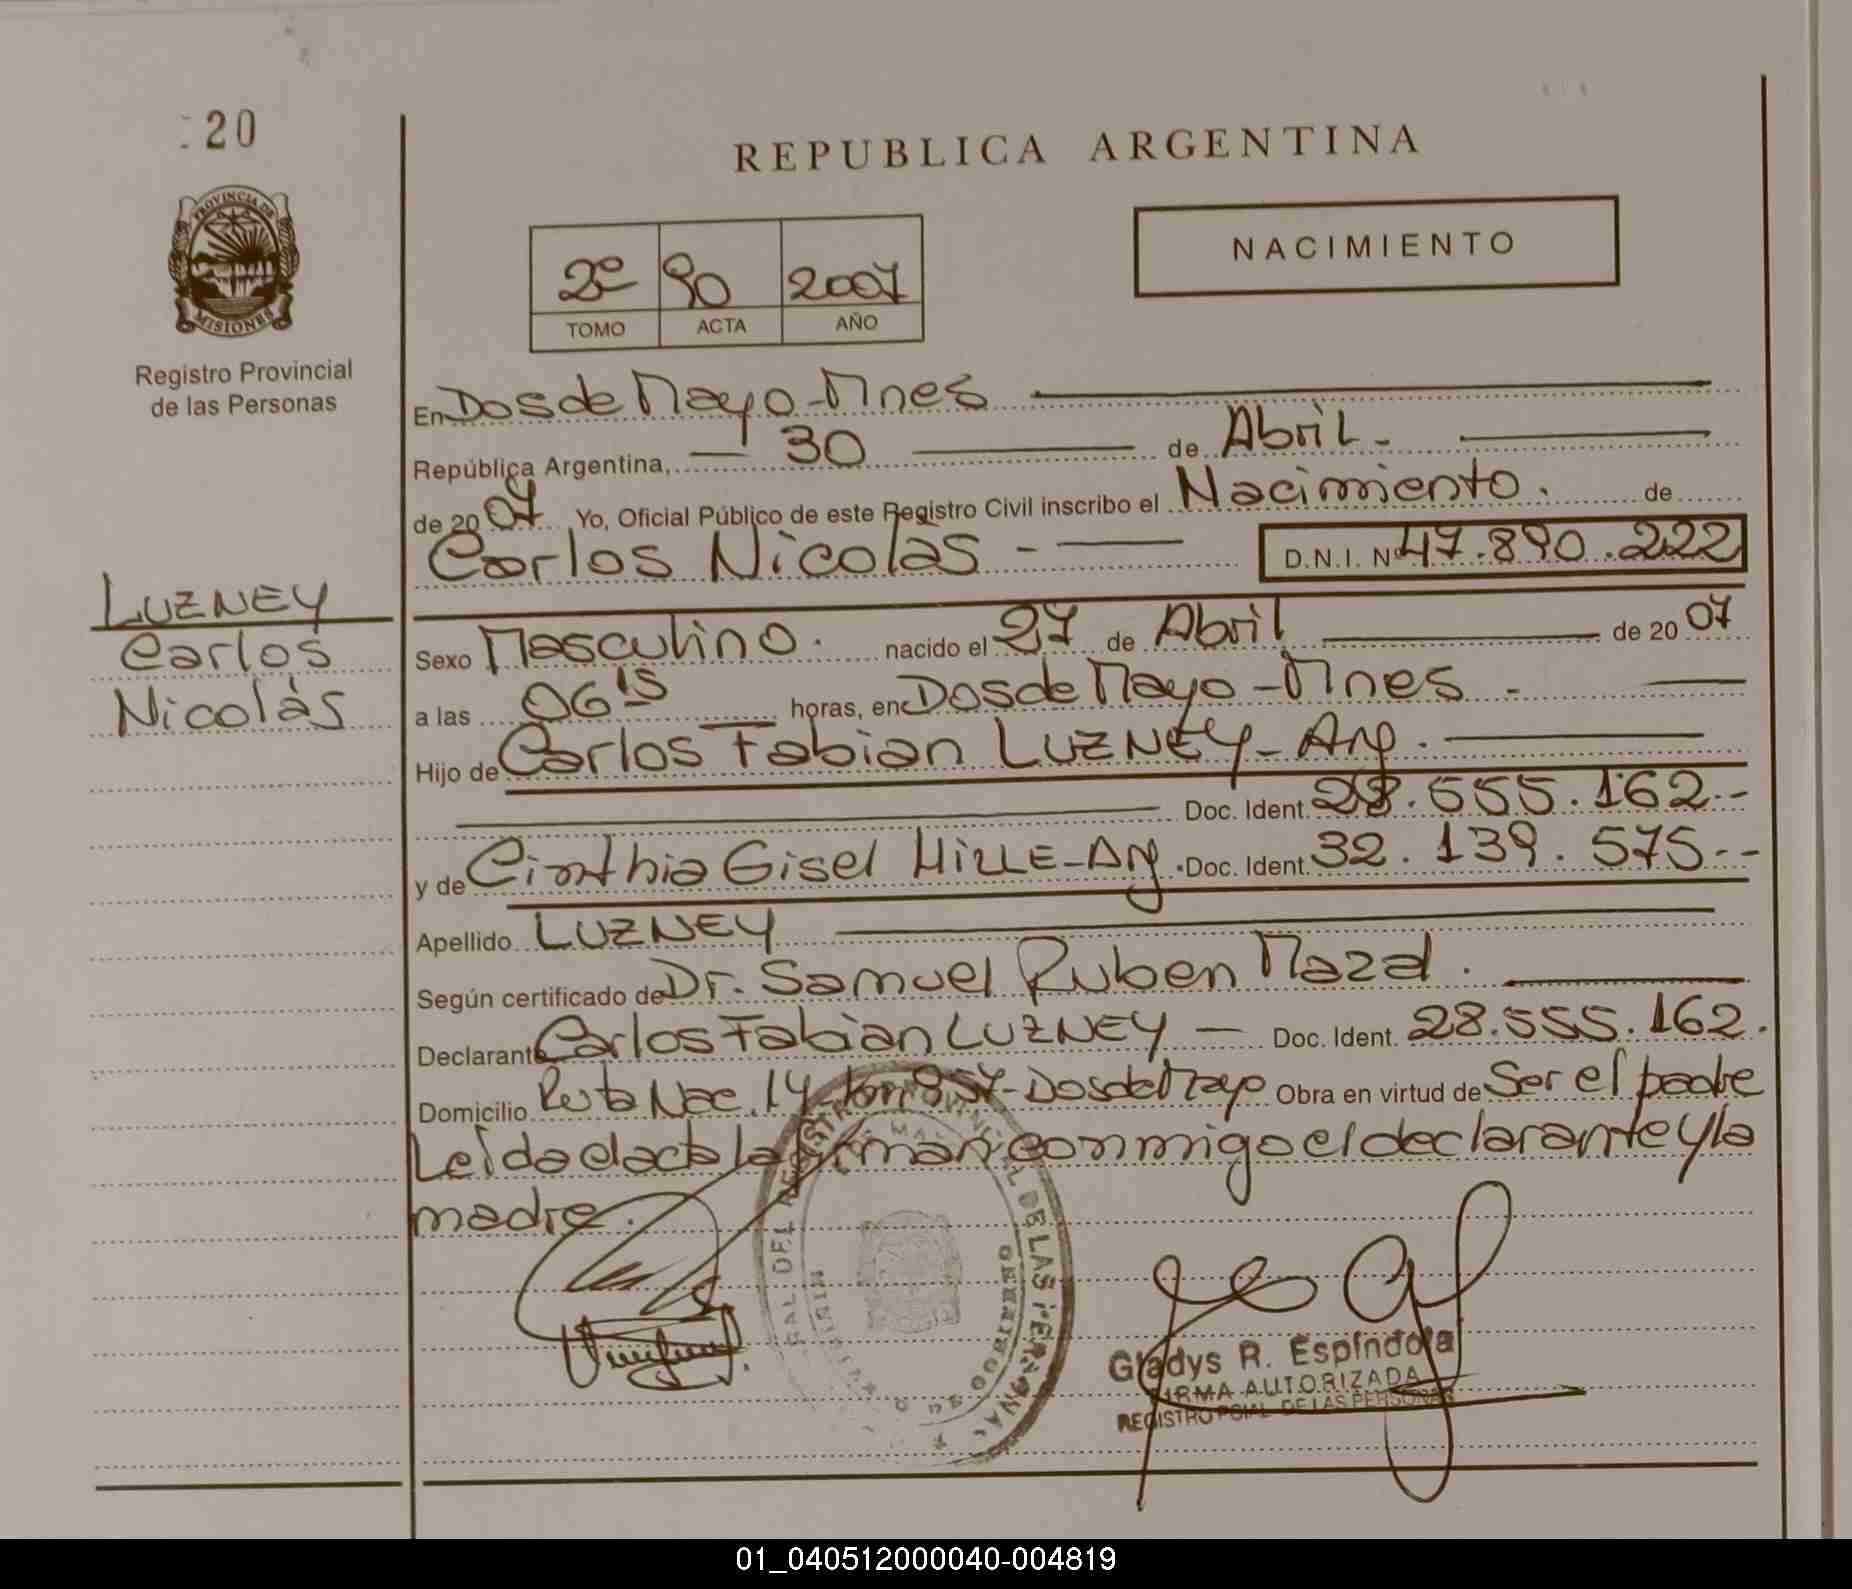 20
PROVINCIA DE
MISIONES
Registro Provincial
de las Personas
LUZNEY
Carlos
Nicolás
REPUBLICA ARGENTINA
NACIMIENTO
2º 90 2007
TOMO ACTA AÑO
En Dos de Mayo - Mnes
República Argentina, 30 de Abril -
de 2007 Yo, Oficial Público de este Registro Civil inscribo el Nacimiento. de
Carlos Nicolas - D.N.I. Nº 47.890.222
Sexo Masculino. nacido el 27 de Abril de 2007
a las 06 15 horas, en Dos de Mayo - Mnes -
Hijo de Carlos Fabian LUZNEY - Arg.
Doc. Ident. 28.555.162 -
y de Cinthia Gisel HILLE - Arg. Doc. Ident. 32.139.575 --
Apellido LUZNEY
Según certificado de Dr. Samuel Ruben Mazal.
Declarante Carlos Fabian LUZNEY - Doc. Ident. 28.555.162.
Domicilio Ruta Nac. 14 - km 957 - Dos de Mayo Obra en virtud de Ser el padre
Leída el acta la firman conmigo el declarante y la
madre.
Gladys R. Espíndola
FIRMA AUTORIZADA
REGISTRO PCIAL DE LAS PERSONAS
01_040512000040-004819